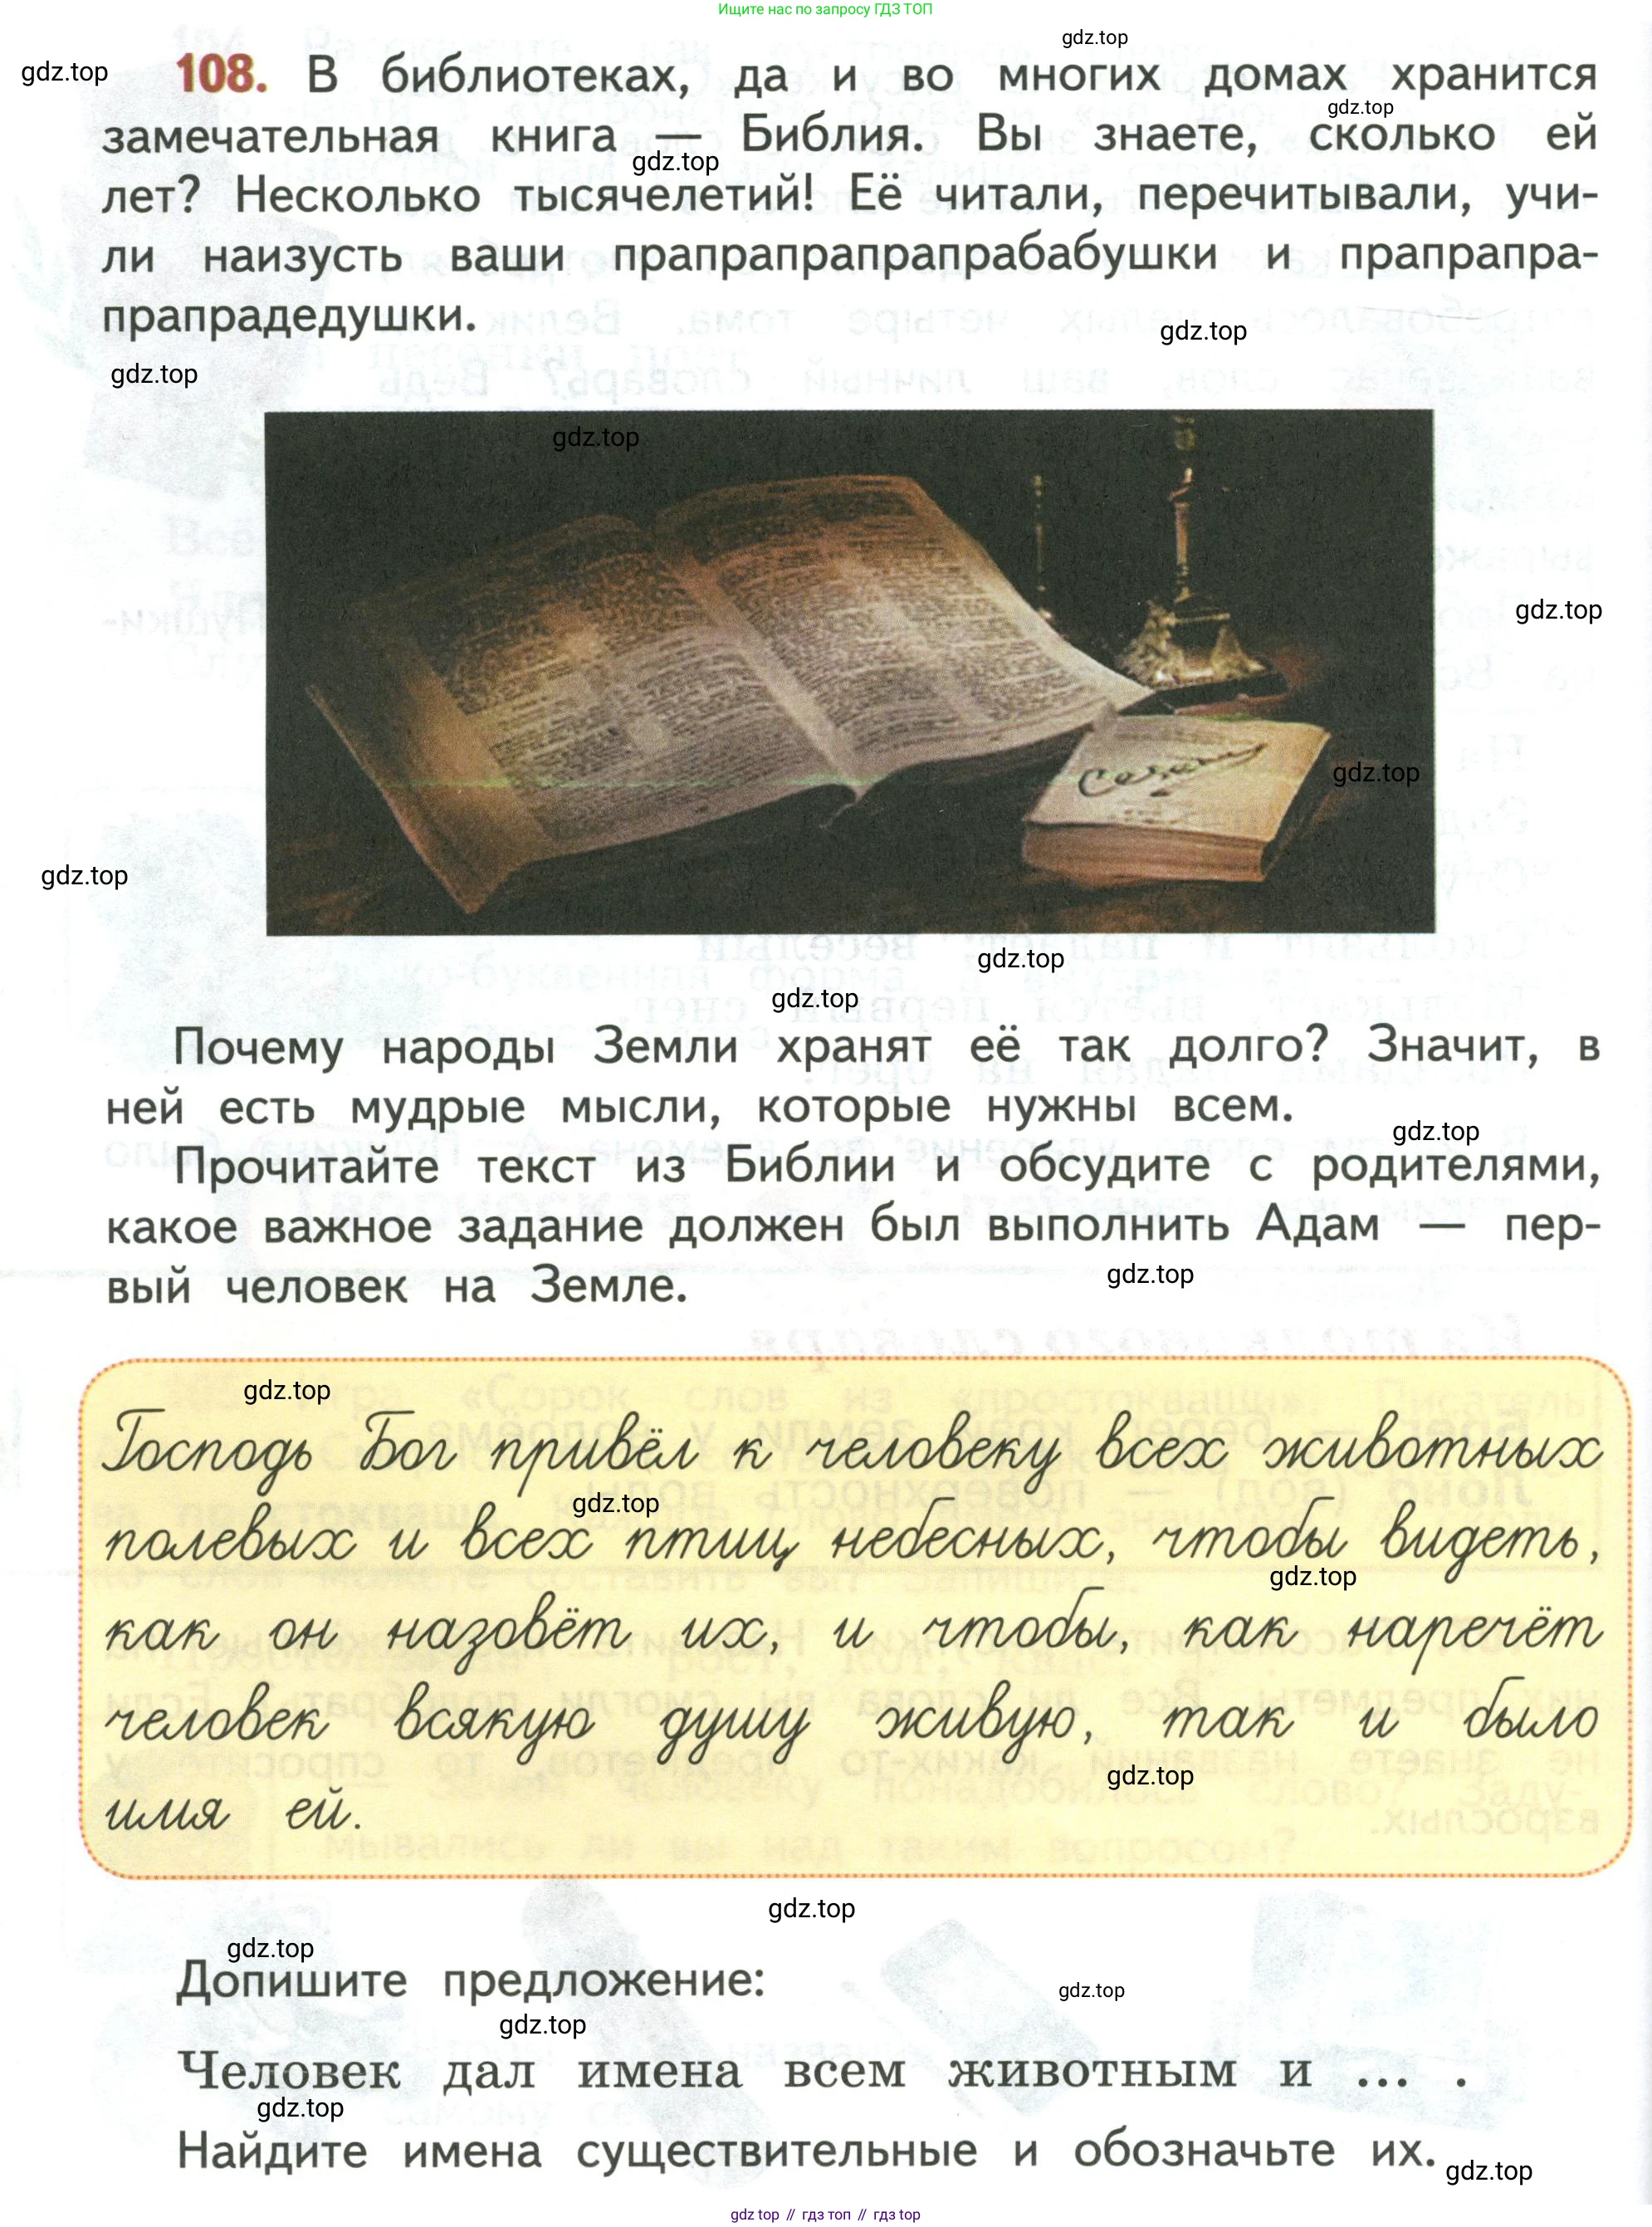 Ищите нас по запросу ГДЗ ТОП
gdz.top
108. В библиотеках, да и во многих домах хранится
gdz.top
gdz.top
замечательная книга — Библия. Вы знаете, сколько ей
gdz.top
лет? Несколько тысячелетий! Её читали, перечитывали, учи-
ли наизусть ваши прапрапрапрапрабабушки и прапрапра-
прапрадедушки.
gdz.top
gdz.top
gdz.top
gdz.top
gdz.top
gdz.top
gdz.top
gdz.top
Почему народы Земли хранят её так долго? Значит, в
ней есть мудрые мысли, которые нужны всем.
gdz.top
Прочитайте текст из Библии и обсудите с родителями,
какое важное задание должен был выполнить Адам — пер-
вый человек на Земле.
gdz.top
gdz.top
Господь Бог привёл к человеку всех животных
gdz.top
полевых и всех птиц небесных, чтобы видеть,
gdz.top
как он назовёт их, и чтобы, как наречёт
человек всякую душу живую, так и было
gdz.top
имя ей.
gdz.top
gdz.top
Допишите предложение:
gdz.top
gdz.top
Человек дал имена всем животным и ... .
gdz.top
Найдите имена существительные и обозначьте их.
gdz.top
gdz top // гдз топ // гдз top